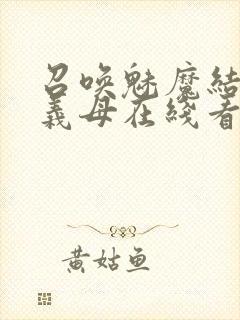 召唤魅魔结
義母在线看
黄姑鱼